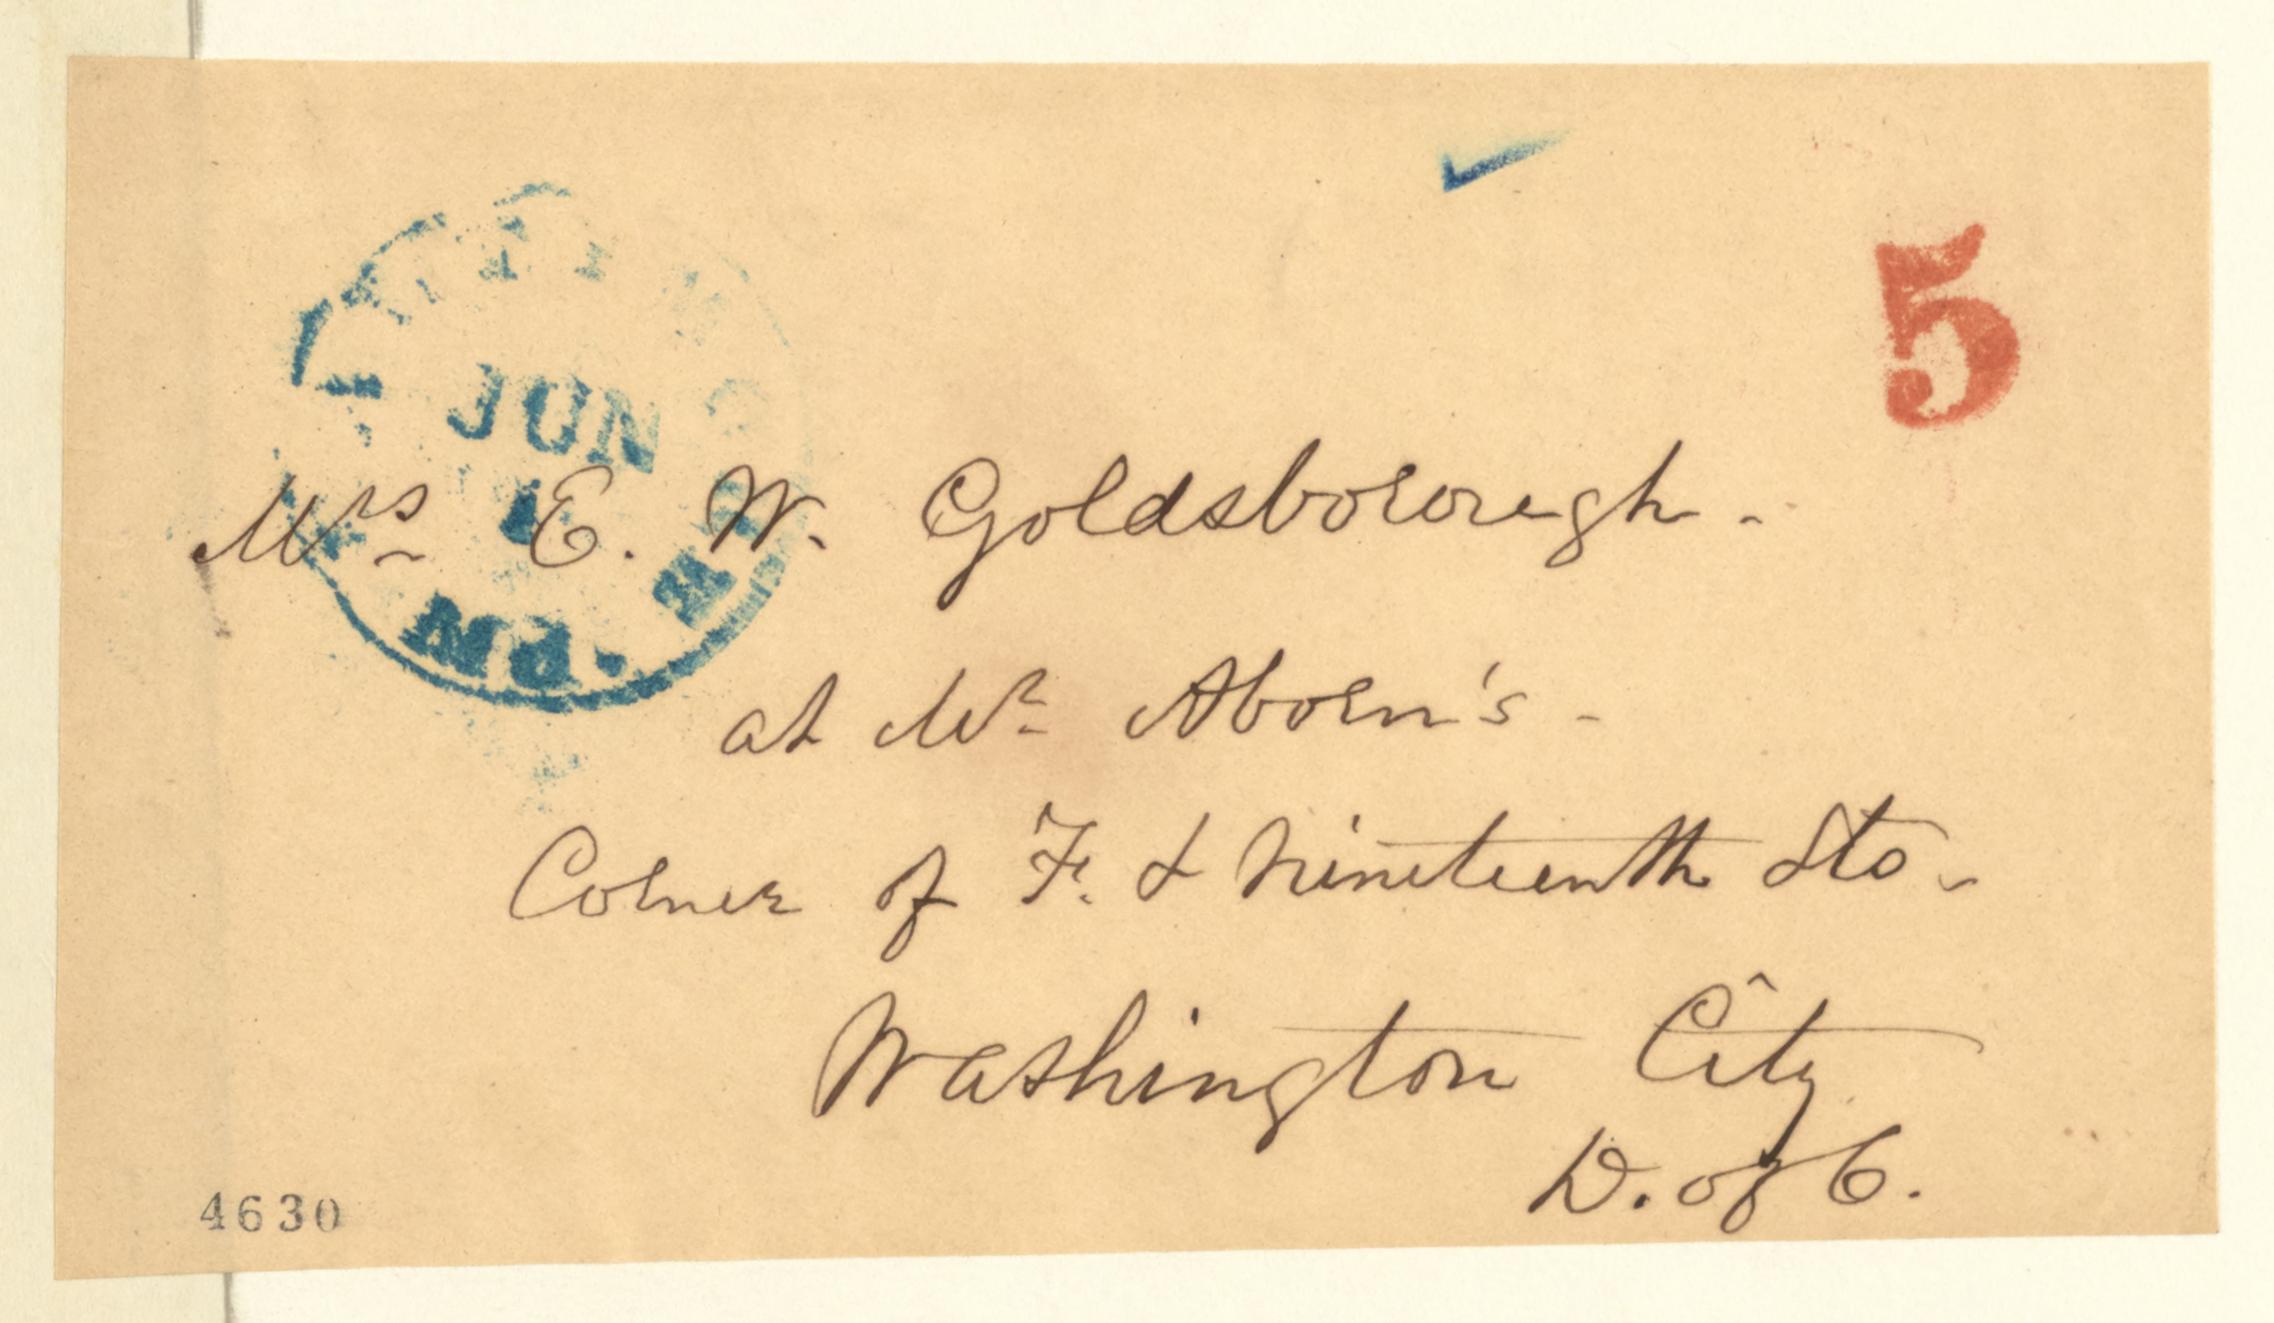 5
JUN
1
Md.
Mrs E. W. Goldsborough.
at Mr Aborn's
Corner of F. & Nineteenth Sts.
Washington City
D. of C.
4630